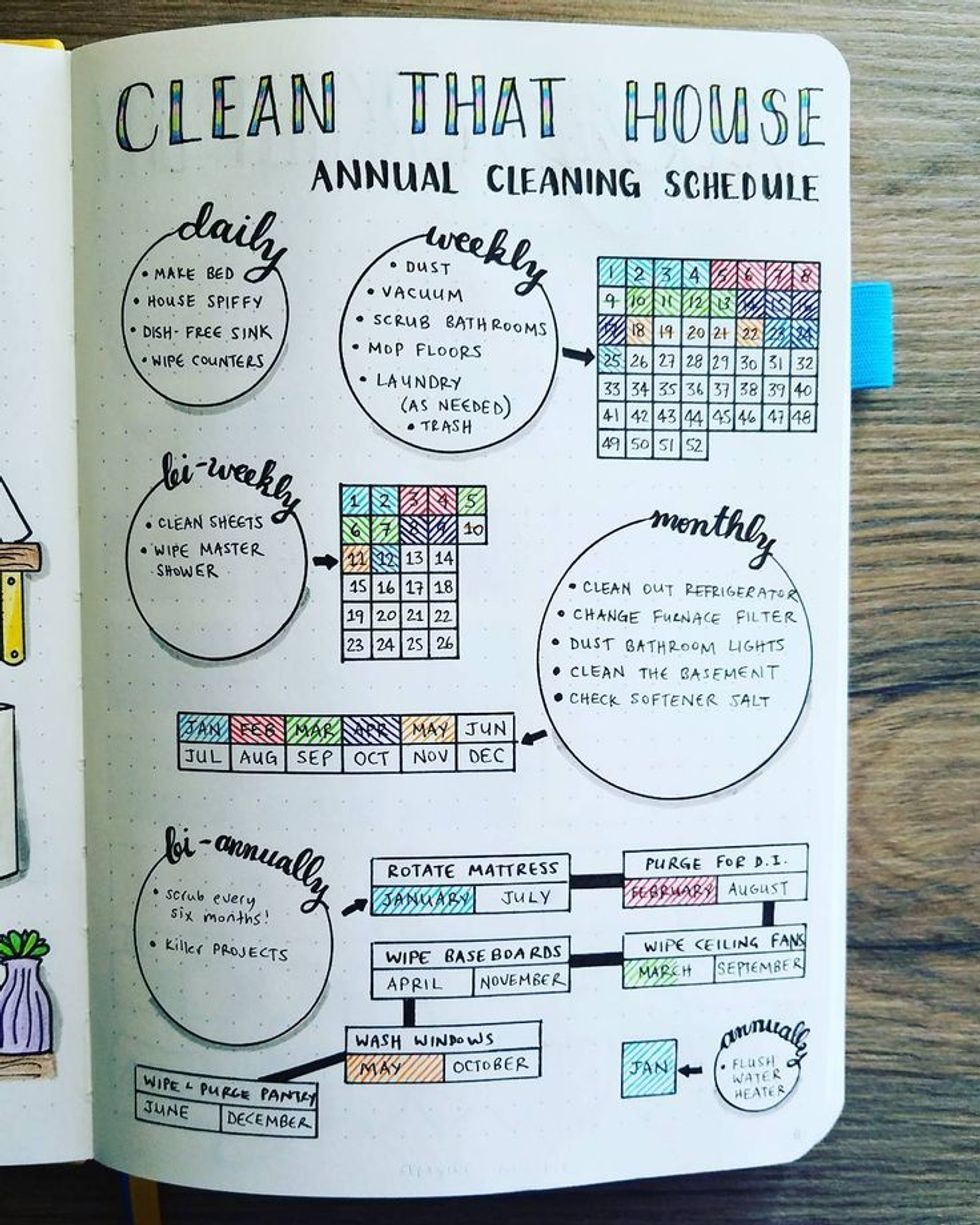 CLEAN THAT HOUSE
ANNUAL CLEANING SCHEDULE
daily
• MAKE BED
• HOUSE SPIFFY
• DISH-FREE SINK
• WIPE COUNTERS
weekly
• DUST
• VACUUM
• SCRUB BATHROOMS
• MOP FLOORS
• LAUNDRY
(AS NEEDED)
• TRASH
1 2 3 4 5 6 7 8
9 10 11 12 13 14 15 16
17 18 19 20 21 22 23 24
25 26 27 28 29 30 31 32
33 34 35 36 37 38 39 40
41 42 43 44 45 46 47 48
49 50 51 52
bi-weekly
• CLEAN SHEETS
• WIPE MASTER
SHOWER
1 2 3 4 5
6 7 8 9 10
11 12 13 14
15 16 17 18
19 20 21 22
23 24 25 26
monthly
• CLEAN OUT REFRIGERATOR
• CHANGE FURNACE FILTER
• DUST BATHROOM LIGHTS
• CLEAN THE BASEMENT
• CHECK SOFTENER SALT
JAN FEB MAR APR MAY JUN
JUL AUG SEP OCT NOV DEC
bi-annually
• scrub every
six months!
• Killer PROJECTS
ROTATE MATTRESS
JANUARY JULY
PURGE FOR D.I.
FEBRUARY AUGUST
WIPE CEILING FANS
MARCH SEPTEMBER
WIPE BASEBOARDS
APRIL NOVEMBER
WASH WINDOWS
MAY OCTOBER
WIPE & PURGE PANTRY
JUNE DECEMBER
annually
• FLUSH
WATER
HEATER
JAN